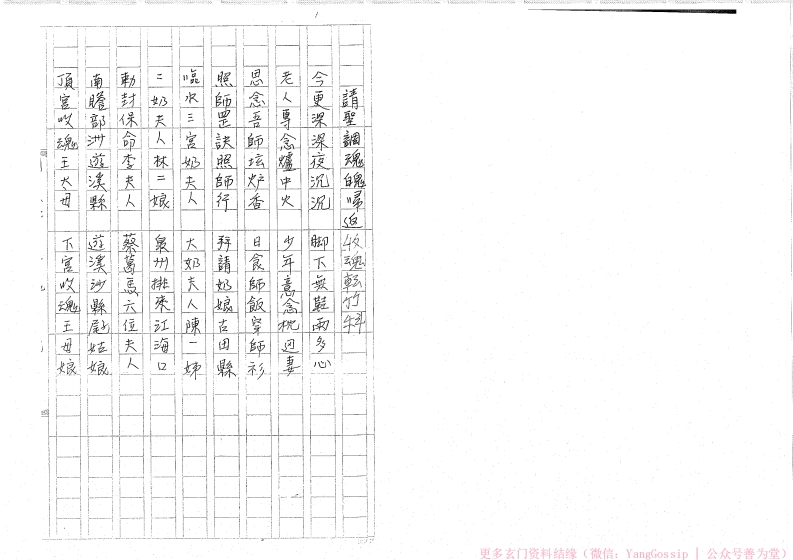 1
請聖調魂魄歸返 收魂転竹科
今更深深夜沉沉 脚下無鞋兩多心
老人專念爐中火 少年意念枕边妻
思念吾師坛炉香 日食師飯穿師衫
照師罡訣照師行 拜請奶娘古田縣
臨水三宮奶夫人 大奶夫人陳一姊
二奶夫人林二娘 泉州排來江海口
勅封保命李夫人 蔡葛馬六位夫人
南瞻部洲遊溪縣 遊溪沙縣尉姑娘
頂宮收魂王太母 下宮收魂王母娘
更多玄门资料结缘（微信：YangGossip | 公众号善为堂）